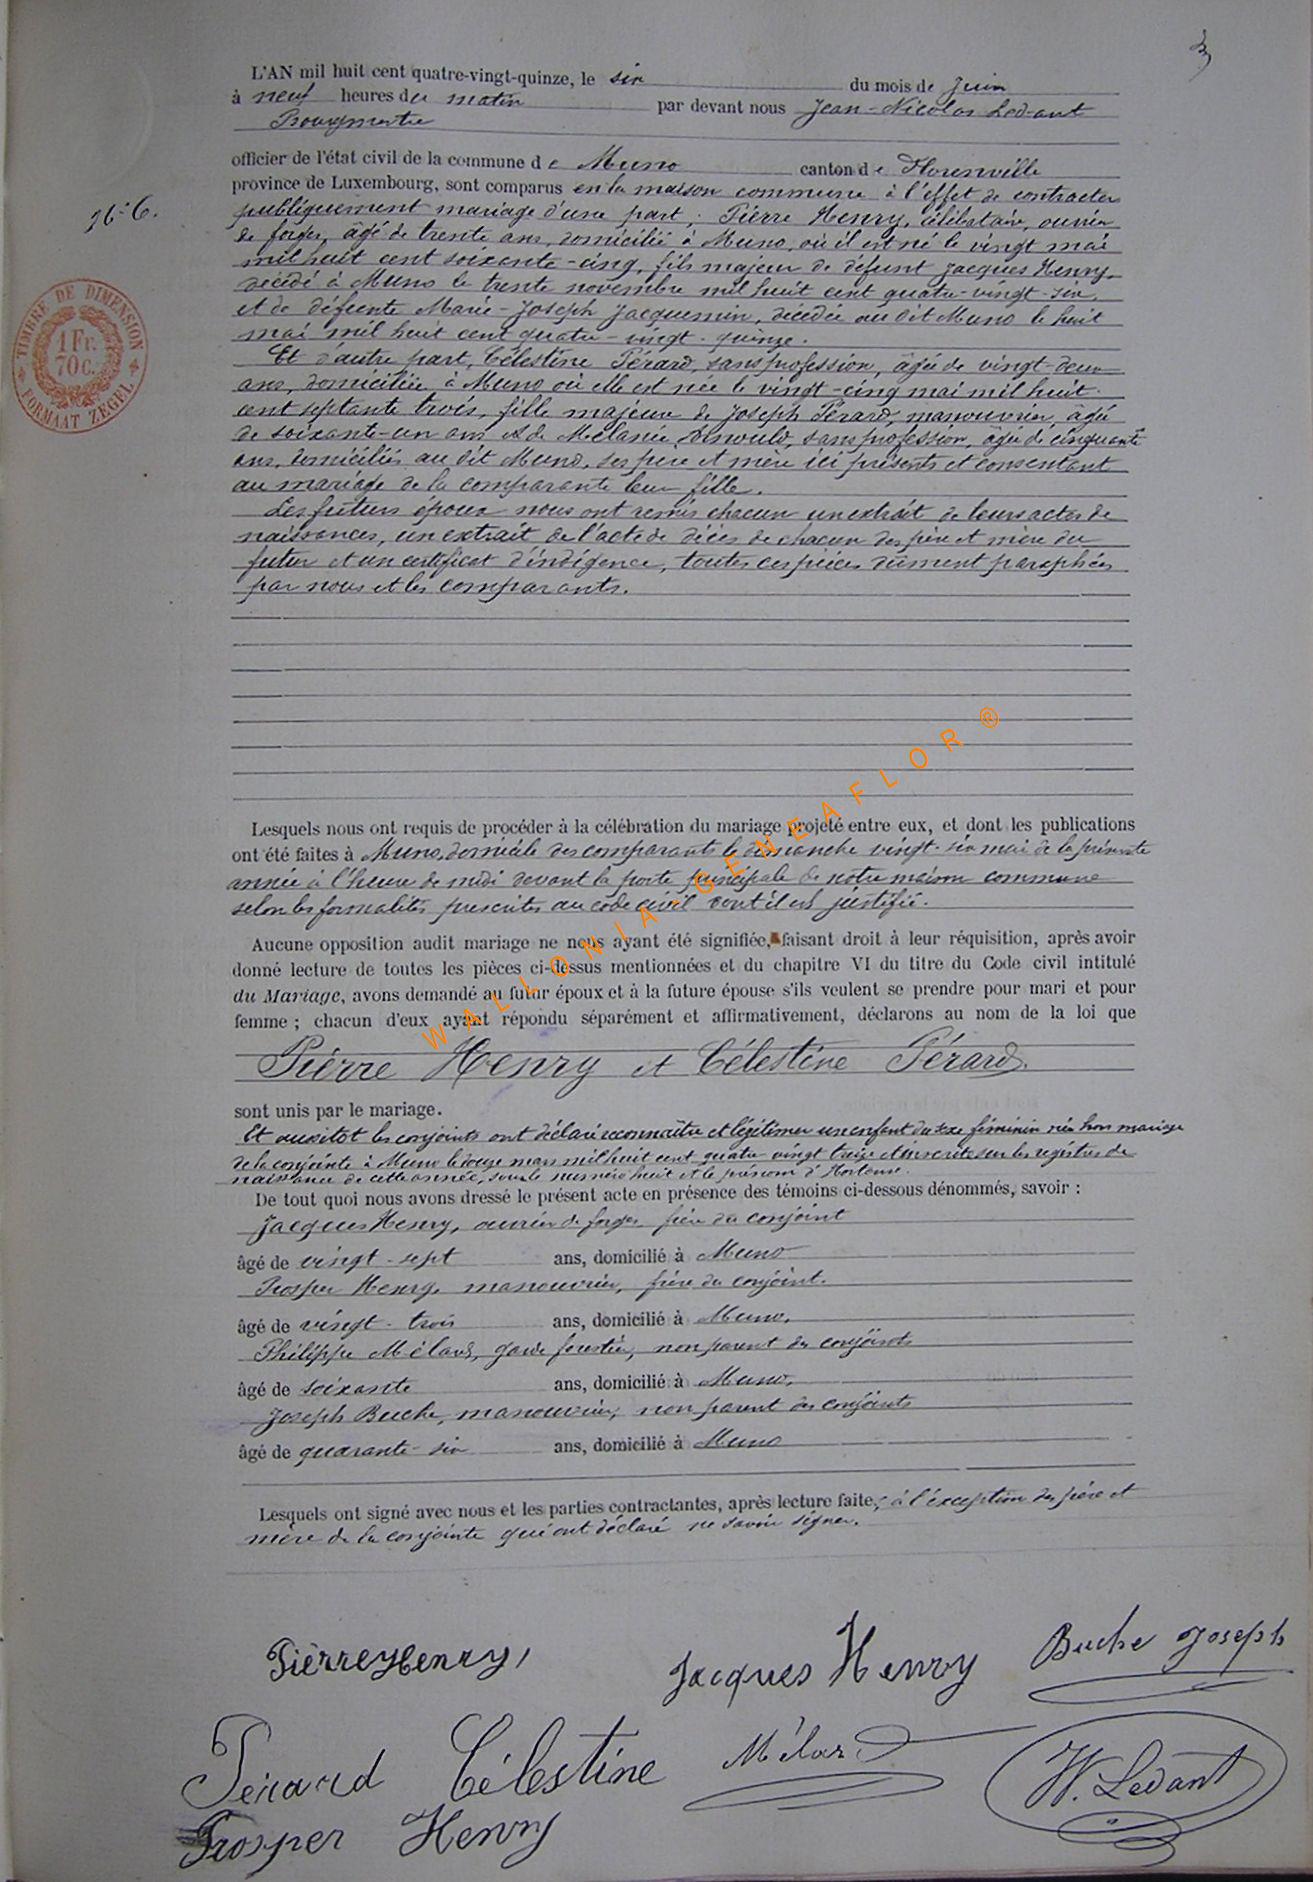 3
L'AN mil huit cent quatre-vingt-quinze, le six du mois de Juin
à neuf heures du matin par devant nous Jean-Nicolas Ledant
Bourgmestre
officier de l'état civil de la commune de Muno canton de Florenville
province de Luxembourg, sont comparus en la maison commune à l'effet de contracter
26-6.
publiquement mariage d'une part, Pierre Henry, célibataire, ouvrier
de forges, âgé de trente ans, domicilié à Muno, où il est né le vingt mai
mil huit cent soixante-cinq, fils majeur de défunt Jacques Henry,
décédé à Muno le trente novembre mil huit cent quatre-vingt-six,
et de défunte Marie-Joseph Jacquemin, décédée au dit Muno le huit
mai mil huit cent quatre-vingt-quinze.
TIMBRE DE DIMENSION
1 Fr. 70 c.
FORMAAT ZEGEL
Et d'autre part, Célestine Pérard, sans profession, âgée de vingt-deux
ans, domiciliée à Muno où elle est née le vingt-cinq mai mil huit-
cent septante trois, fille majeure de Joseph Pérard, manouvrier, âgé
de soixante-un ans et de Mélanie sans profession, âgée de cinquante
ans, domiciliés au dit Muno, ses père et mère ici présents et consentant
au mariage de la comparante leur fille.
Les futurs époux nous ont remis chacun un extrait de leurs actes de
naissances, un extrait de l'acte de décès de chacun des père et mère du
futur et un certificat d'indigence, toutes ces pièces dûment paraphées
par nous et les comparants.
Lesquels nous ont requis de procéder à la célébration du mariage projeté entre eux, et dont les publications
ont été faites à Muno, domicile des comparants le dimanche vingt-six mai de la présente
année à l'heure de midi devant la porte principale de notre maison commune
selon les formalités prescrites au code civil dont il est justifié.
Aucune opposition audit mariage ne nous ayant été signifiée, faisant droit à leur réquisition, après avoir
donné lecture de toutes les pièces ci-dessus mentionnées et du chapitre VI du titre du Code civil intitulé
du Mariage, avons demandé au futur époux et à la future épouse s'ils veulent se prendre pour mari et pour
femme ; chacun d'eux ayant répondu séparément et affirmativement, déclarons au nom de la loi que
Pierre Henry et Célestine Pérard.
sont unis par le mariage.
Et aussitot les conjoints ont déclaré reconnaître et légitimer un enfant du sexe féminin née hors mariage
de la conjointe à Muno le douze mars mil huit cent quatre vingt treize et inscrite sur les registres de
naissance de cette année, sous le numéro huit et le prénom d'Hortense.
De tout quoi nous avons dressé le présent acte en présence des témoins ci-dessous dénommés, savoir :
Jacques Henry, ouvrier de forges, frère du conjoint
âgé de vingt-sept ans, domicilié à Muno
Prosper Henry, manouvrier, frère du conjoint.
âgé de vingt-trois ans, domicilié à Muno,
Philippe Mélard, garde forestier, non parent des conjoints
âgé de soixante ans, domicilié à Muno,
Joseph Buche, manouvrier, non parent des conjoints
âgé de quarante-six ans, domicilié à Muno
Lesquels ont signé avec nous et les parties contractantes, après lecture faite, à l'exception des père et
mère de la conjointe qui ont déclaré ne savoir signer.
Pierre Henry,
Jacques Henry
Buche Joseph
Pérard Célestine
Mélard
N. Ledant
Prosper Henry
WALLONIA-GENEAFLOR ®